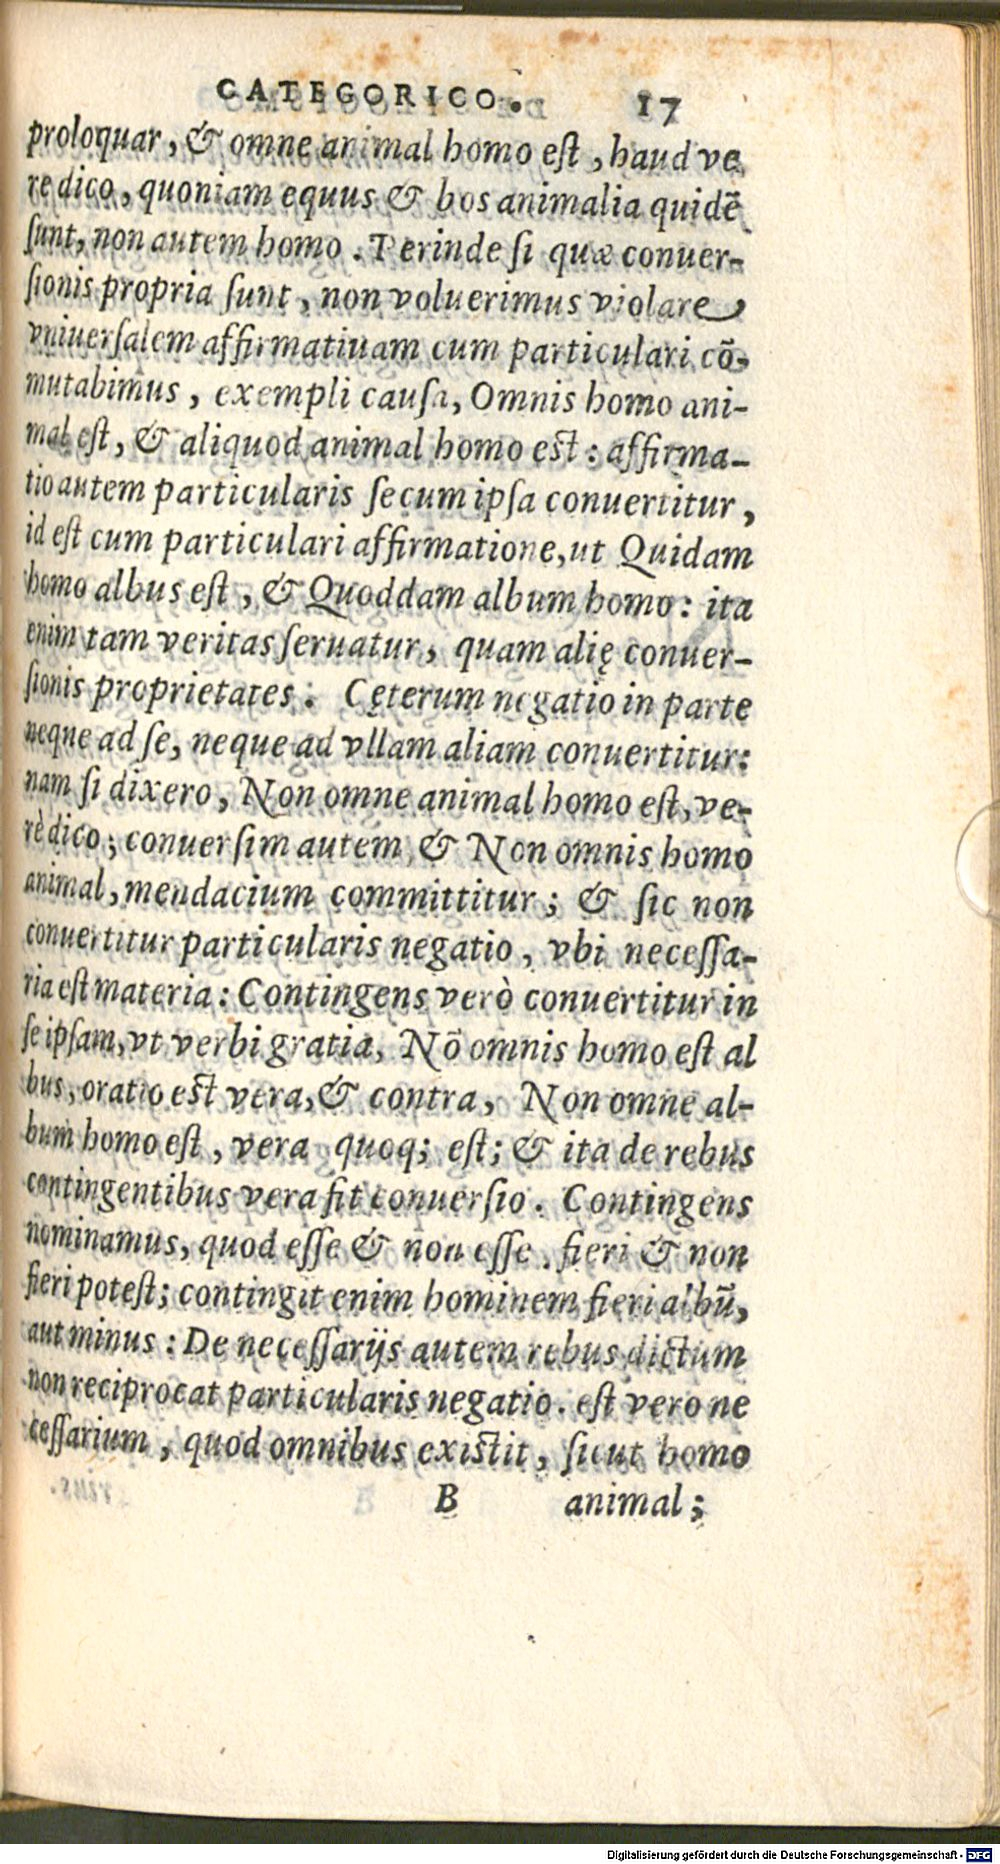 CATEGORICO. 17
proloquar, & omne animal homo eſt, haud ve
re dico, quoniam equus & bos animalia quidē
ſunt, non autem homo. Perinde ſi quæ conuer-
ſionis propria ſunt, non voluerimus violare
vniuerſalem affirmatiuam cum particulari cō-
mutabimus, exempli cauſa, Omnis homo ani-
mal eſt, & aliquod animal homo est: affirma-
tio autem particularis ſecum ipſa conuertitur,
id eſt cum particulari affirmatione, ut Quidam
homo albus eſt, & Quoddam album homo: ita
enim tam veritas ſeruatur, quam alię conuer-
ſionis proprietates. Cęterum negatio in parte
neque ad ſe, neque ad vllam aliam conuertitur:
nam ſi dixero, Non omne animal homo eſt, ve-
rè dico; conuerſim autem & Non omnis homo
animal, mendacium committitur; & ſic non
conuertitur particularis negatio, vbi neceſſa-
ria eſt materia: Contingens verò conuertitur in
ſe ipſam, vt verbi gratia, Nō omnis homo eſt al
bus, oratio est vera, & contra, Non omne al-
bum homo eſt, vera quoq; eſt; & ita de rebus
contingentibus vera fit conuerſio. Contingens
nominamus, quod eſſe & non eſſe, fieri & non
fieri poteſt; contingit enim hominem fieri albū,
aut minus: De neceſſarijs autem rebus dictum
non reciprocat particularis negatio. eſt vero ne
ceſſarium, quod omnibus existit, ſicut homo
B animal;
Digitalisierung gefördert durch die Deutsche Forschungsgemeinschaft - DFG